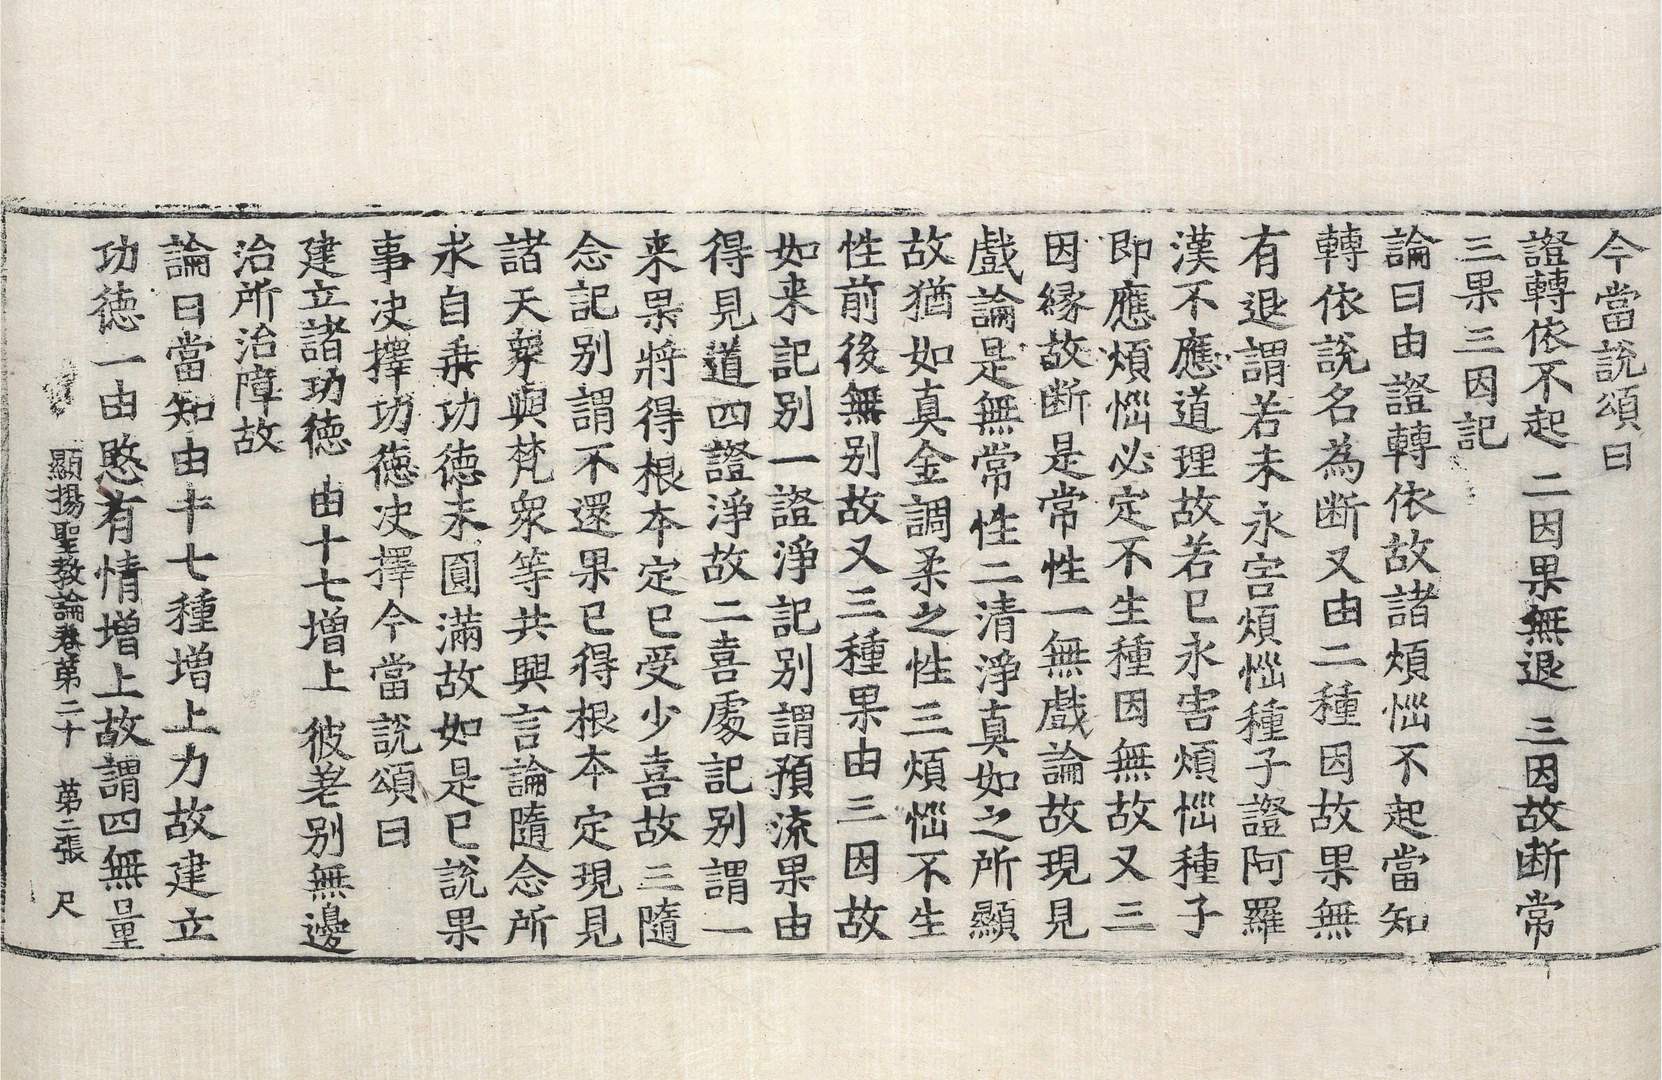 今當說頌曰
證轉依不起 二因果無退 三因故断常
三果三因記
論曰由證轉依故諸煩惱不起當知
轉依說名為断又由二種因故果無
有退謂若未永害煩惱種子證阿羅
漢不應道理故若已永害煩惱種子
即應煩惱必定不生種因無故又三
因縁故断是常性一無戲論故現見
戲論是無常性二清淨真如之所顯
故猶如真金調柔之性三煩惱不生
性前後無别故又三種果由三因故
如来記别一證淨記别謂預流果由
得見道四證淨故二喜處記别謂一
来果將得根本定已受少喜故三隨
念記别謂不還果已得根本定現見
諸天衆與梵衆等共興言論隨念所
求自乗功德未圓滿故如是已說果
事决擇功德决擇今當說頌曰
建立諸功德 由十七增上 彼差别無邊
治所治障故
論曰當知由十七種增上力故建立
功德一由愍有情增上故謂四無量
顯揚聖教論卷第二十 第二張 尺